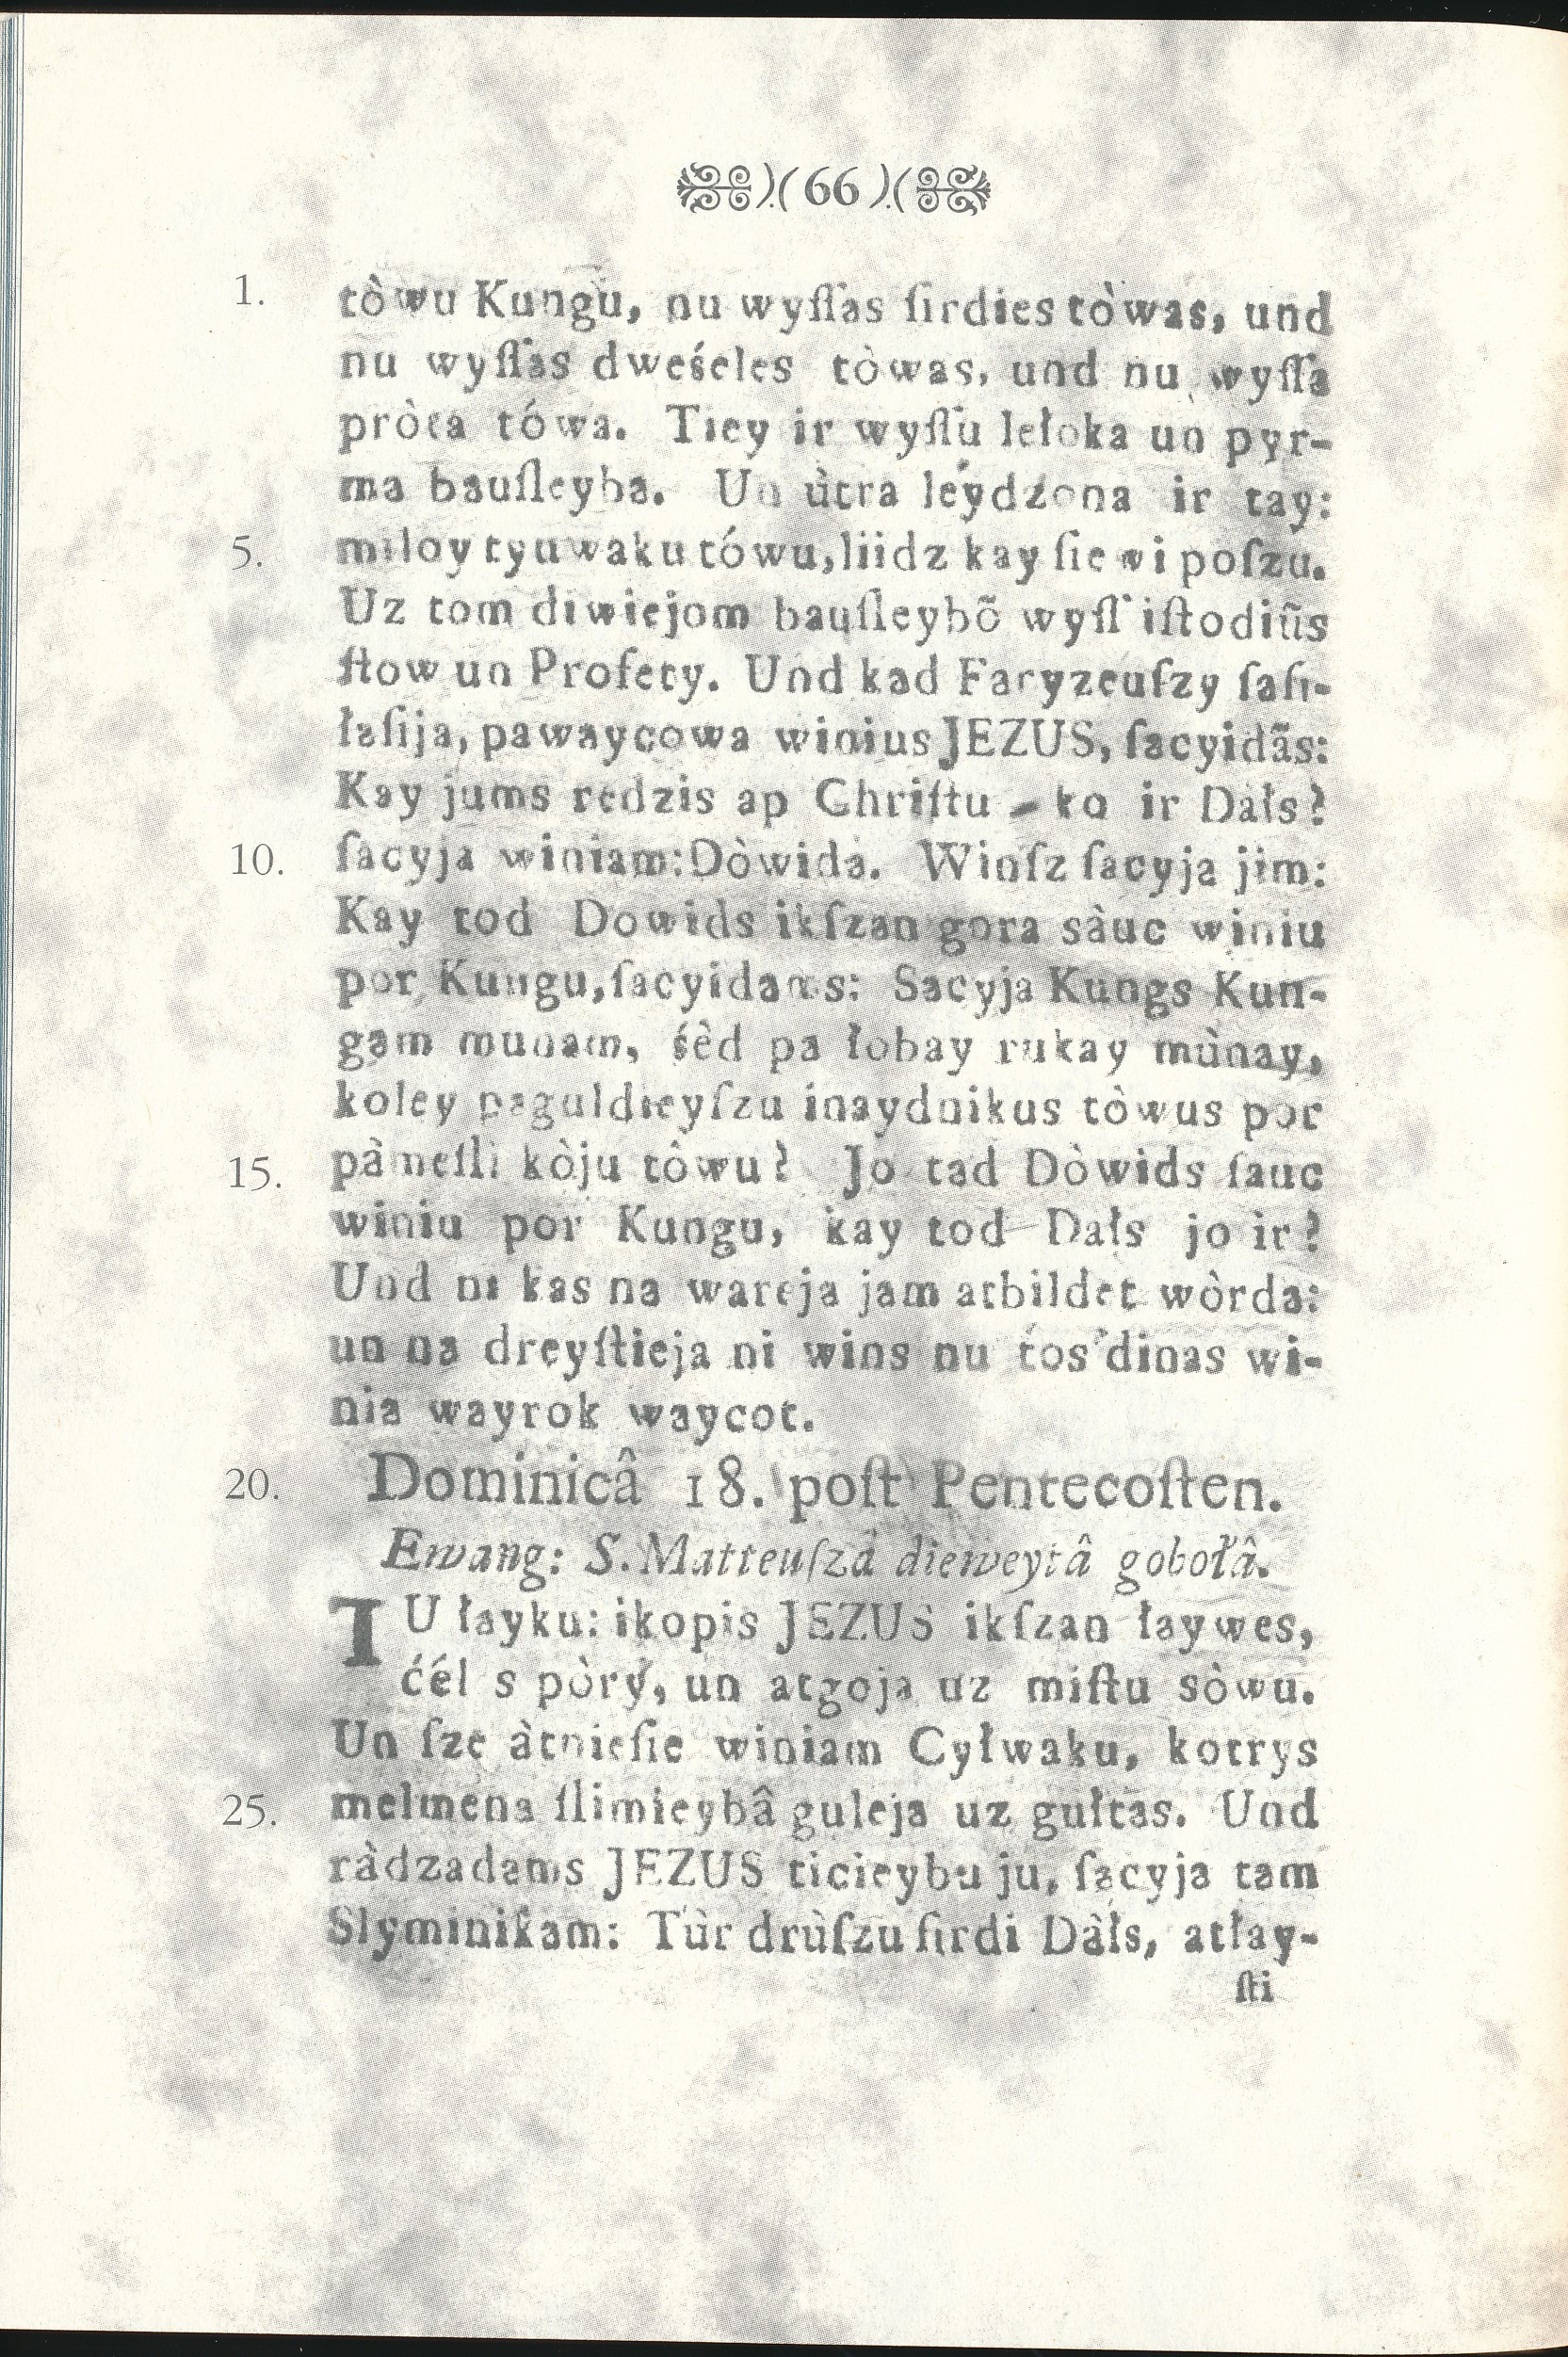 ).( 66 ).(
1. tòwu Kungu, nu wyſſas ſirdies tòwas, und
nu wyſſas dweśeles tòwas, und nu wyſſa
pròta tówa. Tiey ir wyſſu lełoka un pyr-
ma bauſleyba. Un ùtra leydzona ir tay:
5. miloy tyuwaku tówu, liidz kay ſiewi poſzu.
Uz tom diwiejom bauſleybõ wyſſ iſtodiũs
ſtow un Profety. Und kad Faryzeuſzy ſaſi-
łaſija, pawaycowa winius JEZUS, ſacyidãs:
Kay jums redzis ap Chriſtu ko ir Dałs?
10. ſacyja winiam: Dòwida. Winſz ſacyja jim:
Kay tod Dowids ikſzan gora sàuc winiu
por Kungu, ſacyidams: Sacyja Kungs Kun-
gam munam, śèd pa łobay rukay mùnay,
koley paguldieyſzu inaydnikus tòwus por
15. pàmeſli kòju tòwu? Jo tad Dòwids ſauc
winiu por Kungu, kay tod Dałs jo ir?
Und ni kas na wareja jam atbildet wòrda:
un na dreyſtieja ni wins nu tos dinas wi-
nia wayrok waycot.
20. Dominicâ 18. poſt Pentecoſten.
Ewang: S. Matteuſzâ dieweytâ gobołâ.
TU łayku: ikopis JEZUS ikſzan łaywes,
ćél s pòry, un atgoja uz miſtu sòwu.
Un ſze àtnieſie winiam Cyłwaku, kotrys
25. melmena ſlimieybâ guleja uz gułtas. Und
ràdzadams JEZUS ticieybu ju, ſacyja tam
Slyminikam: Tùr drùſzu ſirdi Dàłs, atłay-
ſti